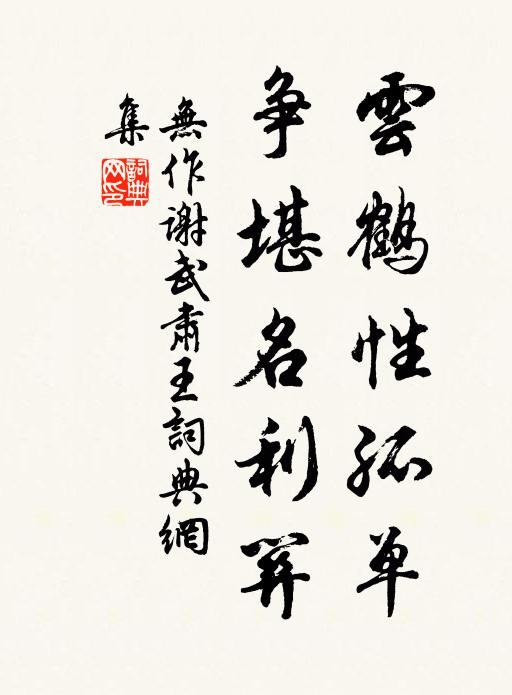 雲鶴性孤单
争堪名利關
無作謝武肅王詞典網
集
詞典
网印